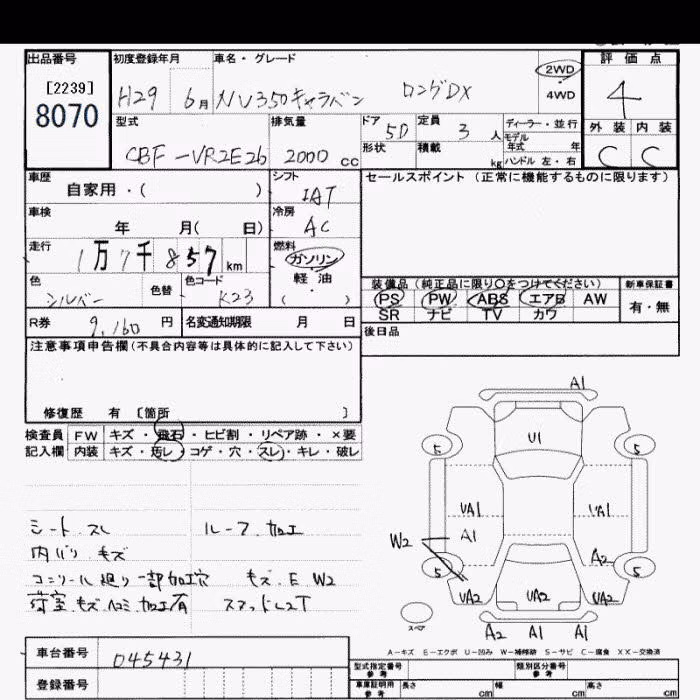 出品番号 初度登録年月 車名・グレード 評価点
[2239] 8070 H29 6月 NV350キャラバン ロングDX 2WD 4WD 4
型式 排気量 ドア 5D 定員 3人 ディーラー・並行 外装 内装
CBF-VR2E26 2000cc 形状 積載 kg モデル年式 年 ハンドル 左・右 C C
車歴 シフト セールスポイント (正常に機能するものに限ります)
自家用・( ) IAT
車検 冷房
年 月( 日) AC
走行 燃料
1万7千857km ガソリン
軽油
色 色替 色コード 装備品(純正品に限り○をつけてください) 新車保証書
シルバー K23 ( ) PS PW ABS エアB AW 有・無
R券 9,160円 名変通知期限 月 日 SR ナビ TV カワ
後日品
注意事項申告欄(不具合内容等は具体的に記入して下さい)
修復歴 有 [箇所 ]
検査員 FW キズ・飛石・ヒビ割・リペア跡・×要
記入欄 内装 キズ・汚レ・コゲ・穴・スレ・キレ・破レ
A1
U1
5 5
UA1 UA1
W2 A1
A2
5 5
UA2 UA2 UA2
スペア
A2 A1 A1
シートスレ ルーフ加工
内バリキズ
廻り一部加工穴 キズE W2
荷室キズヘコミ加工有
A-キズ E-エクボ U-凹み W-補修跡 S-サビ C-腐食 XX-交換済
車台番号 045431
登録番号
型式指定番号 参考 類別区分番号 参考
車庫証明用 参考 長さ cm 幅 cm 高さ cm